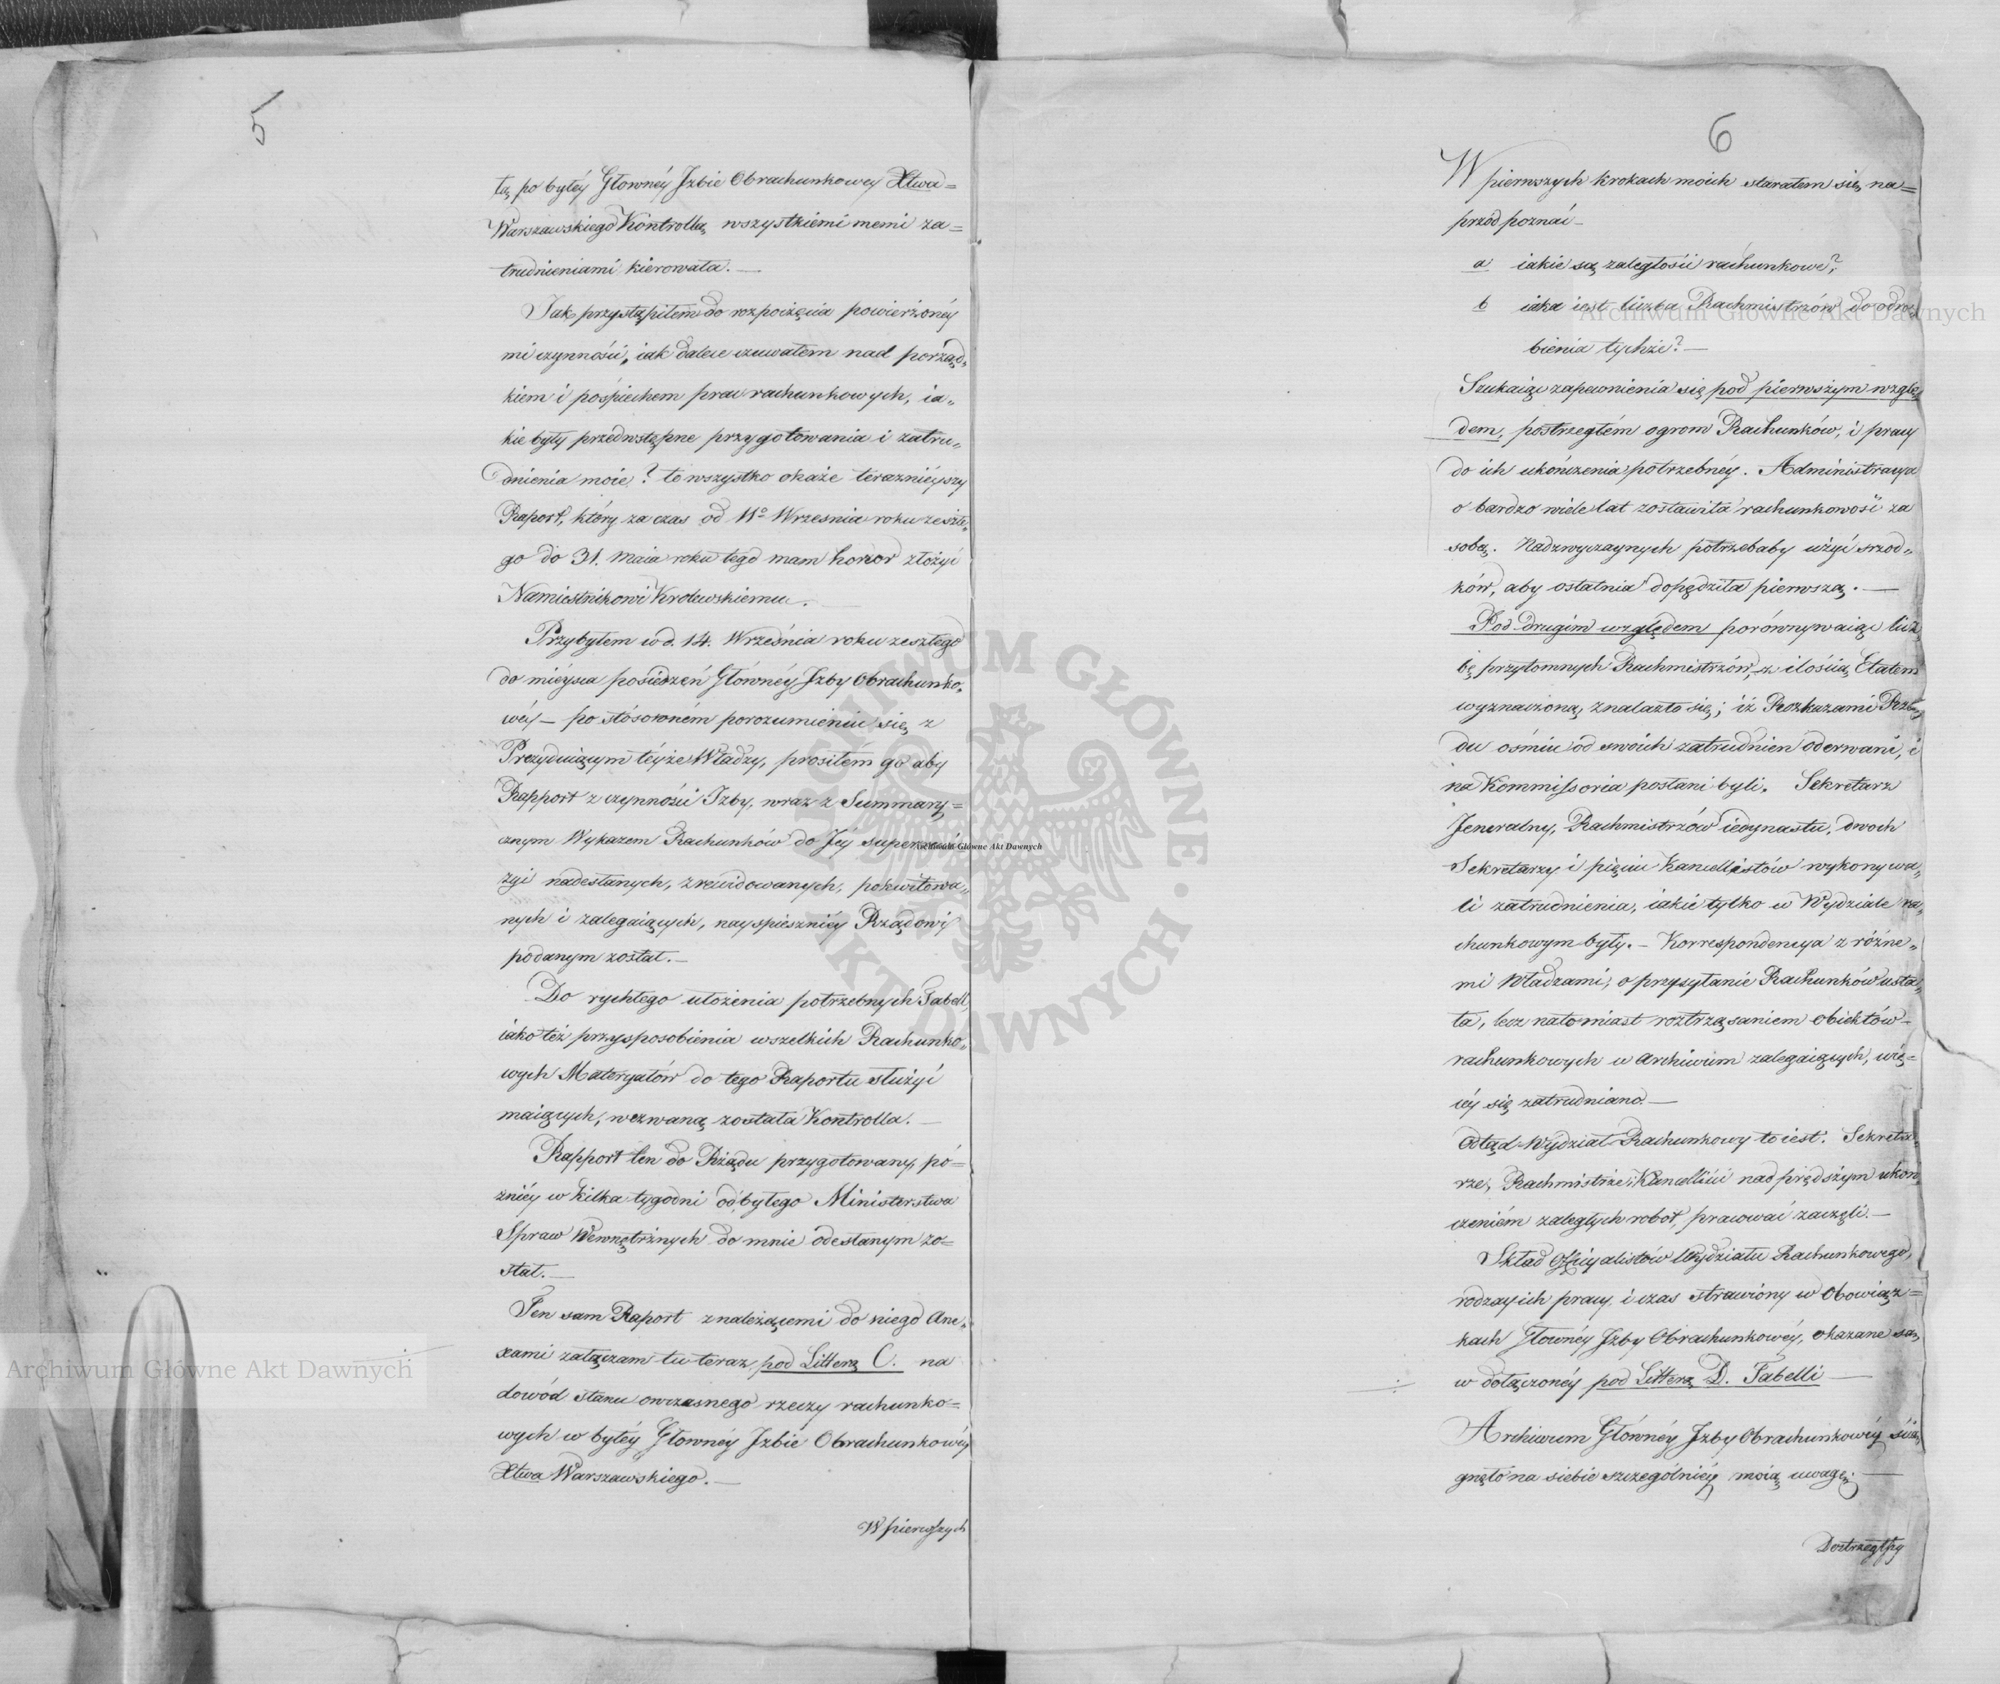 5
tą po byłéy Głowney Jzbie Obrachunkowey Xtwa=
Warszawskiego Kontrollą wszystkiemi memi za=
trudnieniami kierowała. —
Jak przystąpiłem do rozpoczęcia powierzonéy
mi czynności, iak dalece czuwałem nad porząd„
kiem i pośpiechem prac rachunkowych, ia„
kie były przedwstępne przygotowania i zatru„
dnienia moie? to wszystko okaże teraznieyszy
Raport, który za czas od 11º Września roku zeszłe„
go do 31. Maia roku tego mam honor złożyć
Namiestnikowi Krolewskiemu. —
Przybyłem w d. 14. Września roku zeszłego
do mieysca posiedzeń Główney Jzby Obrachunko„
wéy — po stósowném porozumieniu się z
Prezyduiącym téyże Władzy, prosiłem go aby
Rapport z czynności Izby, wraz z Summary=
cznym Wykazem Rachunków do Jéy superrewi
zyi nadesłanych, zrewidowanych, pokwitowa„
nych i zalegaiących, nayspieszniéy Rządowi
podanym został. —
Do rychłego ułożenia potrzebnych Tabell,
iako też przysposobienia wszelkich Rachunko„
wych Materyałów do tego Raportu służyć
maiących, wezwaną została Kontrolla. —
Rapport ten do Rządu przygotowany, pó=
zniéy w kilka tygodni od byłego Ministerstwa
Spraw Wewnętrznych do mnie odesłanym zo=
stał. —
Ten sam Raport z należącemi do niego Ane„
xami załączam tu teraz pod Litterą C. na
dowód stanu owczasnego rzeczy rachunko=
wych w byłéy Głownéy Jzbie Obrachunkowéy
Xtwa Warszawskiego. —
W pierwszych
6
W pierwszych krokach moich starałem się na=
przód poznać —
a iakie są zaległości rachunkowe?
b iaka iest liczba Rachmistrzów do odro„
bienia tychże? —
Szukaiąc zapewnienia się pod pierwszym wzglę„
dem, postrzegłém ogrom Rachunków, i pracy
do ich ukończenia potrzebnéy. Administracya
o bardzo wiele lat zostawiła rachunkowość za
sobą. Nadzwyczaynych potrzebaby użyć srzod„
ków, aby ostatnia dopędziła pierwszą. —
Pod drugim względem porównywaiąc licz„
bę przytomnych Rachmistrzów, z ilością Etatem
wyznaczoną, znalazło się; iż Rozkazami Rzą„
du ośmiu od swoich zatrudnien oderwani, i
na Kommissoria posłani byli. Sekretarz
Jeneralny, Rachmistrzów iedynastu, dwoch
Sekretarzy i pięciu Kancellistów wykonywa„
li zatrudnienia, iakie tylko w Wydziale ra„
chunkowym były. — Korrespondencya z różne„
mi Władzami, o przysyłanie Rachunków usta„
ła, lecz natomiast roztrząsaniem obiektów —
rachunkowych w Archiwum zalegaiących, wię=
céy się zatrudniano. —
Odtąd Wydział Rachunkowy to iest. Sekreta=
rze, Rachmistrze, Kancelliści nad prędszym ukon„
czeniém zaległych robot, pracować zaczęli. —
Skład Officyalistów Wydziału Rachunkowego,
rodzay ich pracy, i czas strawiony w Obowiąz=
kach Głownéy Jzby Obrachunkowéy, okazane są,
w dołączonéy pod Litterą D. Tabelli —
Archiwum Głównéy Jzby Obrachunkowéy ścią„
gnęło na siebie szczególniéy moią uwagę. —
Dostrzegłszy
ARCHIWUM GŁÓWNE AKT DAWNYCH
Archiwum Główne Akt Dawnych
Archiwum Główne Akt Dawnych
Archiwum Główne Akt Dawnych